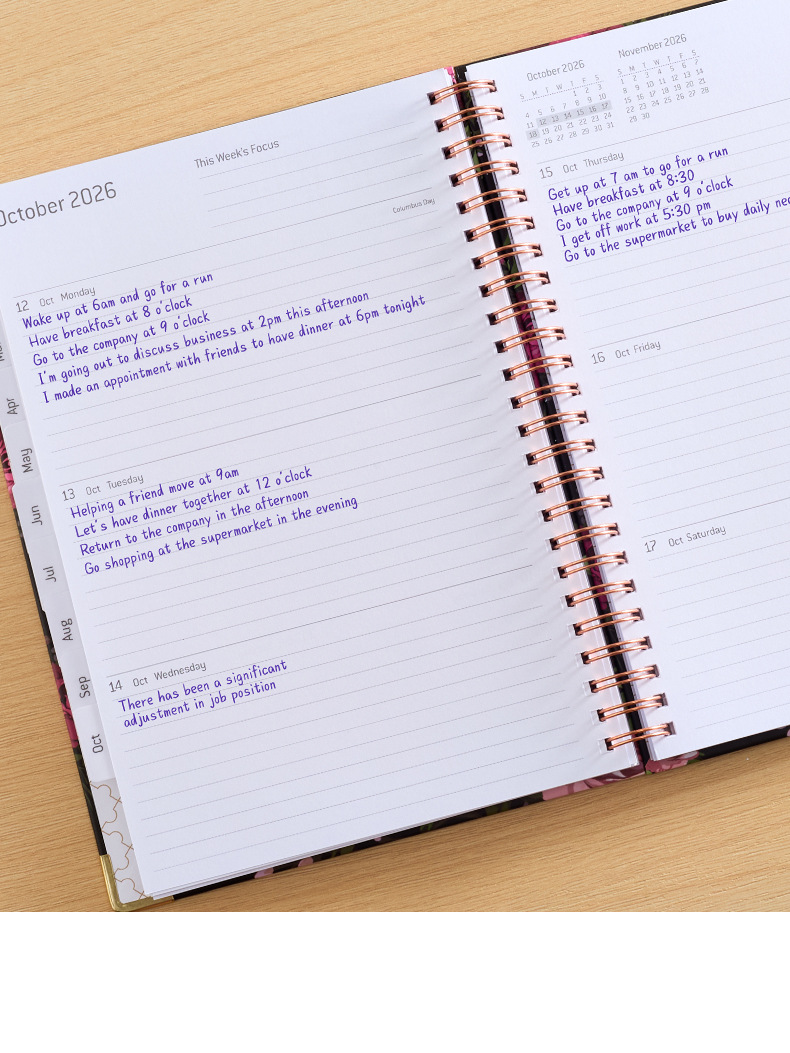 October 2026
This Week's Focus
Columbus Day
12 Oct Monday
Wake up at 6am and go for a run
Have breakfast at 8 o'clock
Go to the company at 9 o'clock
I'm going out to discuss business at 2pm this afternoon
I made an appointment with friends to have dinner at 6pm tonight
13 Oct Tuesday
Helping a friend move at 9am
Let's have dinner together at 12 o'clock
Return to the company in the afternoon
Go shopping at the supermarket in the evening
14 Oct Wednesday
There has been a significant
adjustment in job position
Apr
May
Jun
Jul
Aug
Sep
Oct
October 2026
S M T W T F S
1 2 3
4 5 6 7 8 9 10
11 12 13 14 15 16 17
18 19 20 21 22 23 24
25 26 27 28 29 30 31
November 2026
S M T W T F S
1 2 3 4 5 6 7
8 9 10 11 12 13 14
15 16 17 18 19 20 21
22 23 24 25 26 27 28
29 30
15 Oct Thursday
Get up at 7 am to go for a run
Have breakfast at 8:30
Go to the company at 9 o'clock
I get off work at 5:30 pm
Go to the supermarket to buy daily
16 Oct Friday
17 Oct Saturday